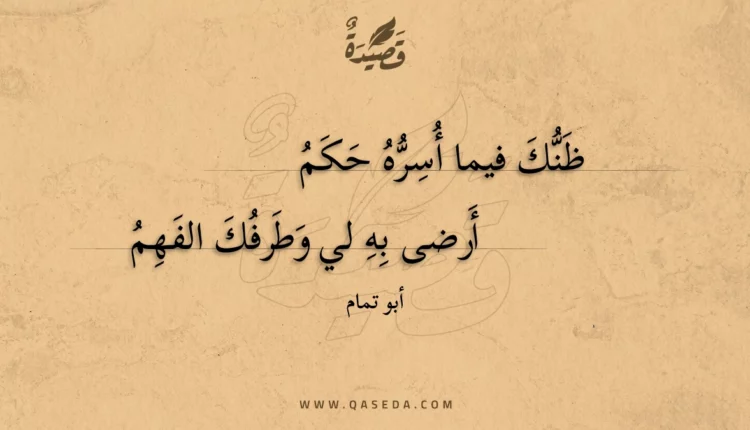 قَصِيدَةٌ
ظَنُّكَ فيما أُسِرُّهُ حَكَمُ
أَرضى بِهِ لي وَطَرفُكَ الفَهِمُ
أبو تمام
WWW.QASEDA.COM